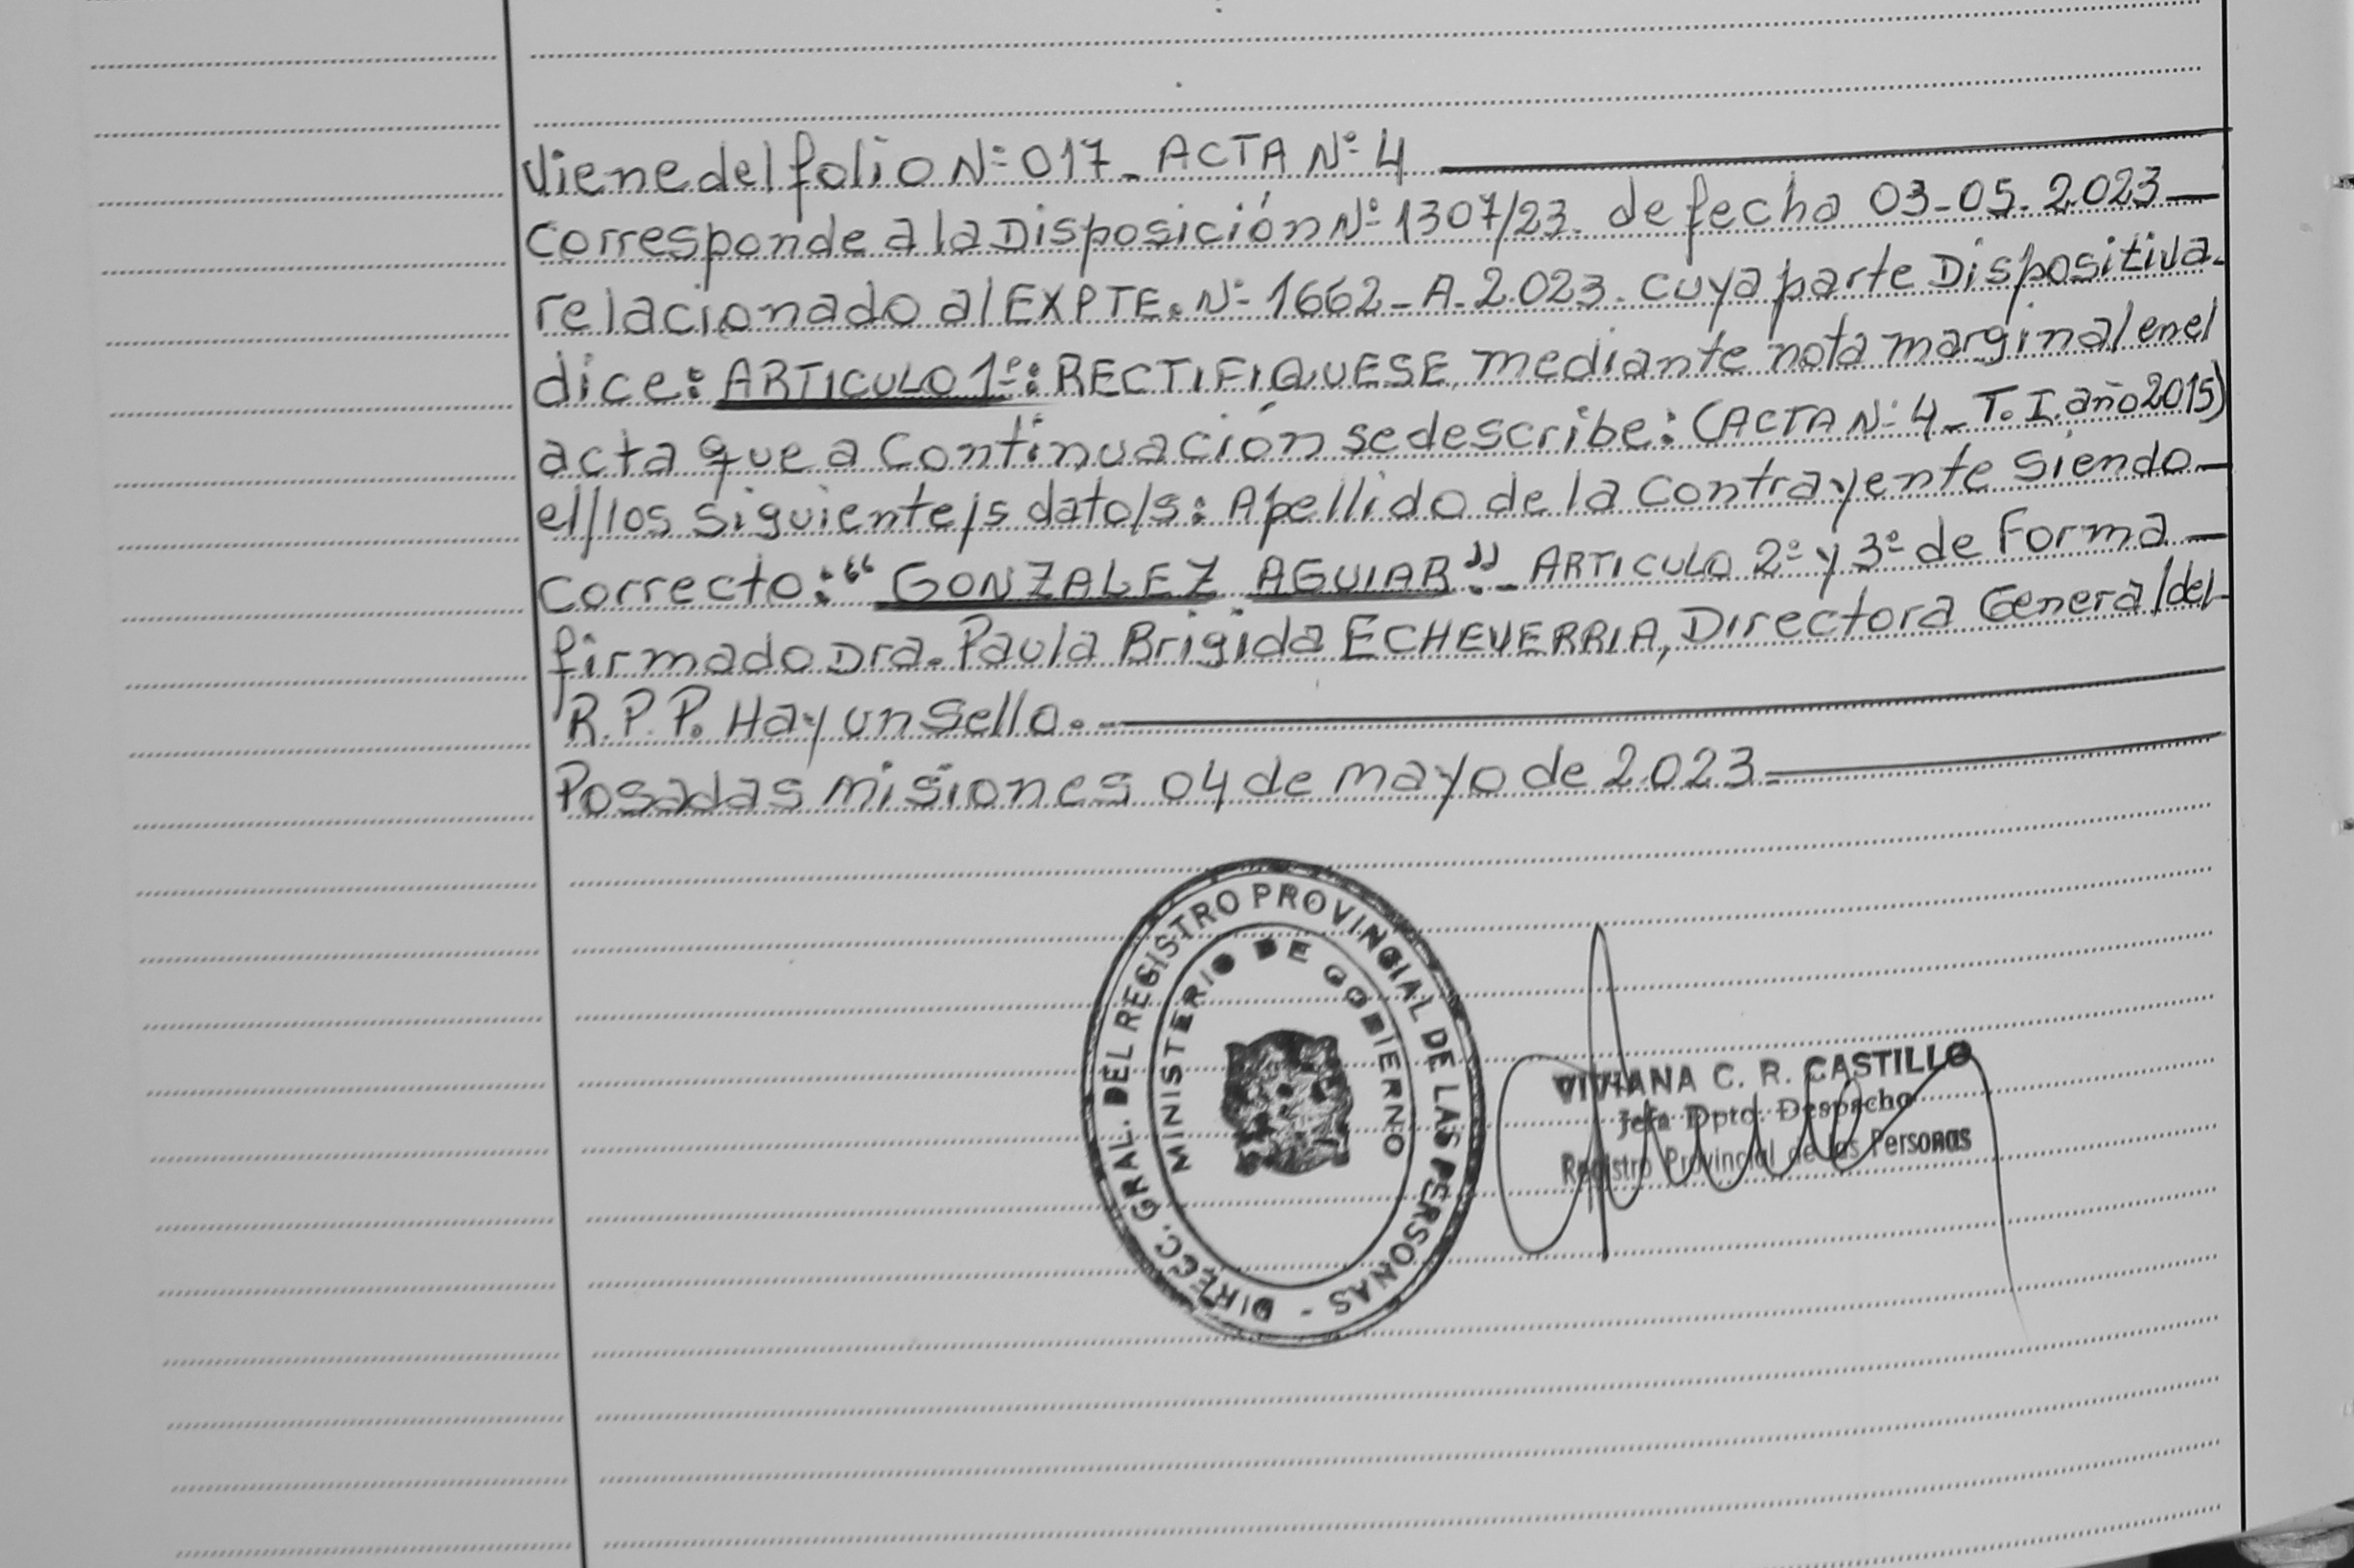 Viene del folio Nº 017_ ACTA Nº 4
Corresponde a la Disposición Nº 1307/23. de fecha 03-05-2.023_
relacionado al EXPTE. Nº 1662_A_2.023. cuya parte Dispositiva.
dice: ARTICULO 1º: RECTIFIQUESE, mediante nota marginal en el
acta que a Continuación se describe: (ACTA Nº 4_ T. I. año 2015)
el/los siguiente/s dato/s: Apellido de la Contrayente siendo_
Correcto: "GONZALEZ AGUIAR"._ ARTICULO 2º y 3º de Forma_
firmado Dra. Paula Brigida ECHEVERRIA, Directora General del_
R.P.P. Hay un Sello._
Posadas Misiones 04 de mayo de 2.023_
DIRECC. GRAL. DEL REGISTRO PROVINCIAL DE LAS PERSONAS -
MINISTERIO DE GOBIERNO
VIVIANA C. R. CASTILLO
Jefa Dpto. Despacho
Registro Provincial de las Personas